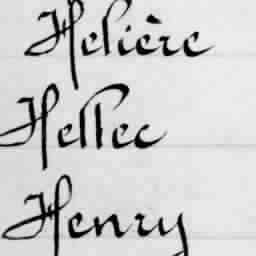 Helière
Hellec
Henry